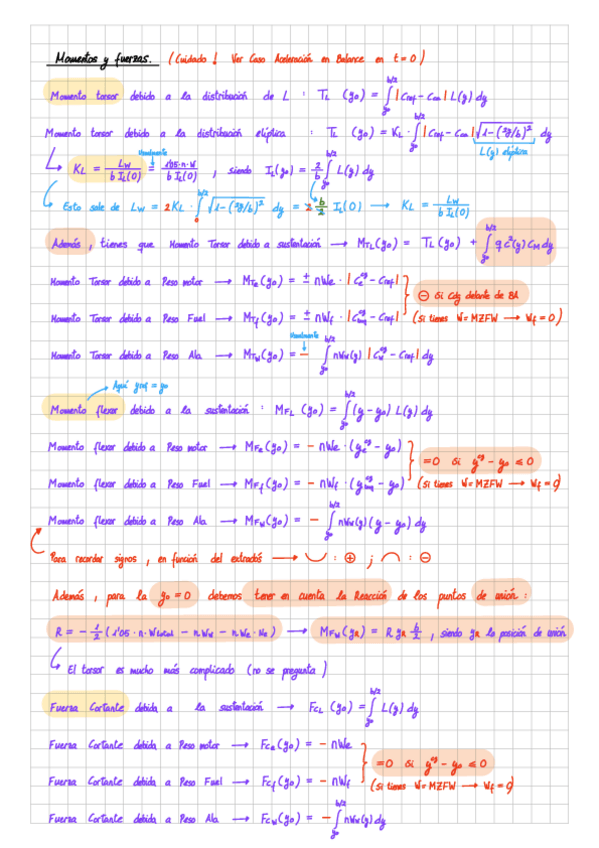 Momentos y fuerzas. (Cuidado! Ver Caso Aceleración en Balance en t=0)
Momento torsor debido a la distribución de L : T_L (y0) = ∫_{y0}^{b/2} |C_ref - C_ca| L(y) dy
Momento torsor debido a la distribución elíptica : T_L (y0) = K_L · ∫_{y0}^{b/2} |C_ref - C_ca| √(1-(2y/b)²) dy
L(y) elíptica
Usualmente
K_L = L_W / (b I_L(0)) = 1'05·n·W / (b I_L(0)) , siendo I_L(y0) = 2/b ∫_{y0}^{b/2} L(y) dy
Esto sale de L_W = 2K_L · ∫_0^{b/2} √(1-(2y/b)²) dy = 2 b/2 I_L(0) → K_L = L_W / (b I_L(0))
Además, tienes que Momento Torsor debido a sustentación → M_TL(y0) = T_L(y0) + ∫_{y0}^{b/2} q c²(y) C_M dy
Momento Torsor debido a Peso motor → M_Te(y0) = ± nWe · |C_e^cg - C_ref|
⊖ si cdg delante de BA
Momento Torsor debido a Peso Fuel → M_Tf(y0) = ± nWf · |C_tanq^cg - C_ref| (Si tienes W=MZFW → Wf=0)
Usualmente
Momento Torsor debido a Peso Ala → M_Tw(y0) = - ∫_{y0}^{b/2} nWw(y) |C_w^cg - C_ref| dy
Aquí yref = y0
Momento flexor debido a la sustentación : M_FL (y0) = ∫_{y0}^{b/2} (y-y0) L(y) dy
Momento flexor debido a Peso motor → M_Fe(y0) = - nWe · (y_e^cg - y0)
=0 si y^cg - y0 ≤ 0
Momento flexor debido a Peso Fuel → M_Ff(y0) = - nWf · (y_tanq^cg - y0) (Si tienes W=MZFW → Wf=0)
Momento flexor debido a Peso Ala → M_Fw(y0) = - ∫_{y0}^{b/2} nWw(y)(y-y0) dy
Para recordar signos, en función del extradós → ⌣ : ⊕ ; ⌢ : ⊖
Además, para la y0=0 debemos tener en cuenta la Reacción de los puntos de unión :
R = - 1/2 (1'05·n·Wtotal - n·Ww - n·We·Ne) → M_Fw(yR) = R yR b/2 , siendo yR la posición de unión
El torsor es mucho más complicado (no se pregunta)
Fuerza Cortante debida a la sustentación → F_CL (y0) = ∫_{y0}^{b/2} L(y) dy
Fuerza Cortante debida a Peso motor → F_Ce(y0) = - nWe
=0 si y^cg - y0 ≤ 0
Fuerza Cortante debida a Peso Fuel → F_Cf(y0) = - nWf (Si tienes W=MZFW → Wf=0)
Fuerza Cortante debida a Peso Ala → F_Cw(y0) = - ∫_{y0}^{b/2} nWw(y) dy